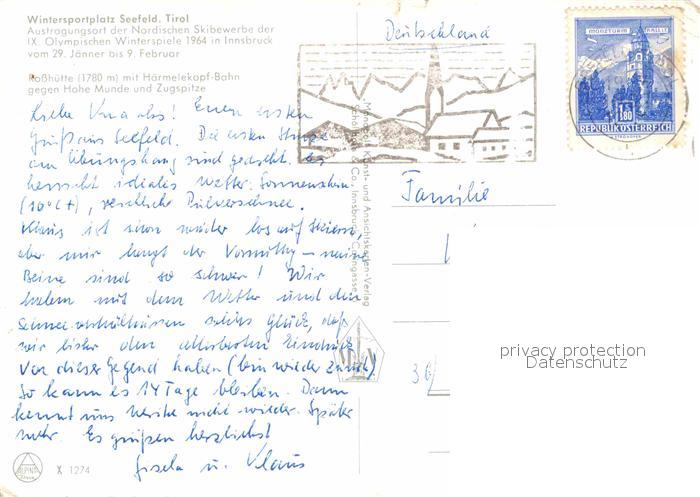 Wintersportplatz Seefeld, Tirol
Austragungsort der Nordischen Skibewerbe der
IX. Olympischen Winterspiele 1964 in Innsbruck
vom 29. Jänner bis 9. Februar
Roßhütte (1780 m) mit Härmelekopf-Bahn
gegen Hohe Munde und Zugspitze
Liebe ! Euch ersten
Gruß aus Seefeld. Die ersten
am Übungshang sind gemacht. Es
herrscht ideales Wetter. Sonnenschein
(10°C+), reichlich Pulverschnee.
Klaus ist schon wieder los auf
aber mir langt der Vormittag – meine
Beine sind so schwer! Wir
haben mit dem Wetter und den
Schneeverhältnissen solches Glück, daß
wir bisher den allerbesten Eindruck
von dieser Gegend haben (bin wieder zurück)
So kann es 14 Tage bleiben. Dann
kennt uns nicht wieder. Später
mehr. Es grüßen herzlichst
Gisela u. Klaus
ALPINA
X 1274
Deutschland
MÜNZTURM HALL
1.80
REPUBLIK ÖSTERREICH
Familie
36
privacy protection
Datenschutz